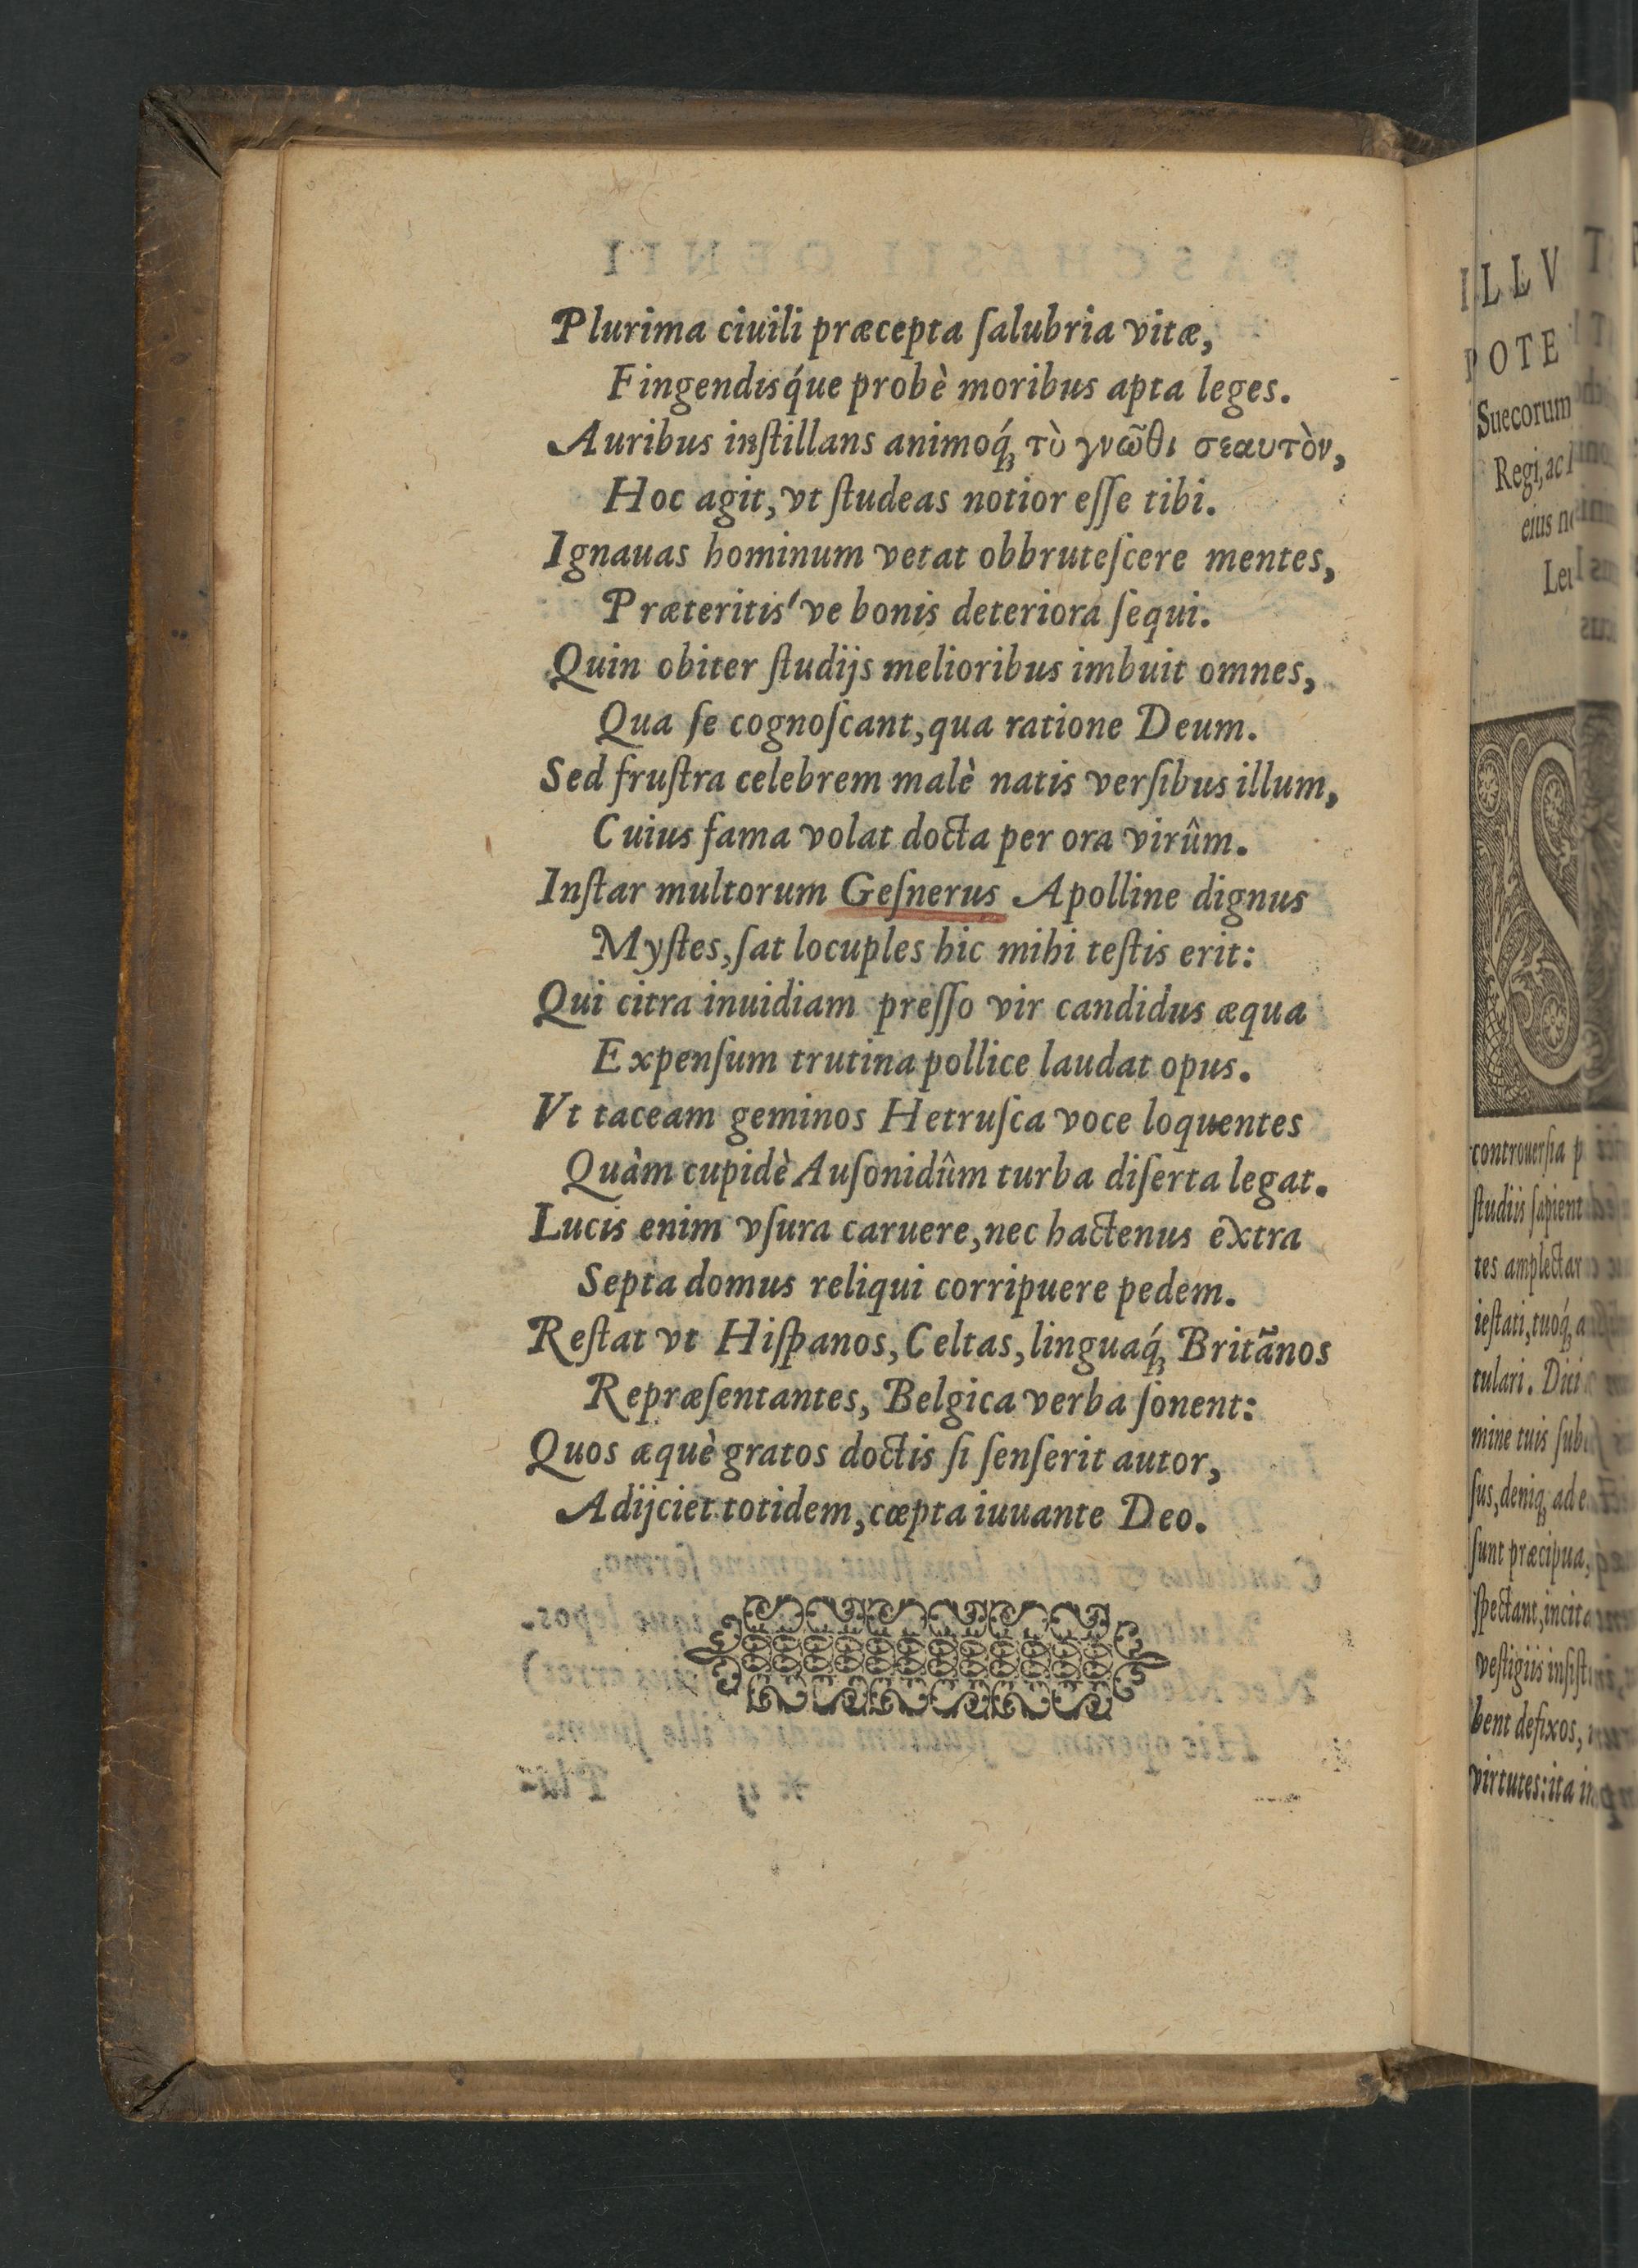 Plurima ciuili præcepta ſalubria vitæ,
Fingendisq́ue probè moribus apta leges.
Auribus inſtillans animoq́ꝫ τὸ γνῶθι σεαυτὸν,
Hoc agit, vt ſtudeas notior eſſe tibi.
Ignauas hominum vetat obbruteſcere mentes,
Præteritis've bonis deteriora ſequi.
Quin obiter ſtudijs melioribus imbuit omnes,
Qua ſe cognoſcant, qua ratione Deum.
Sed fruſtra celebrem malè natis verſibus illum,
Cuius fama volat docta per ora virûm.
Inſtar multorum Geſnerus Apolline dignus
Myſtes, ſat locuples hic mihi teſtis erit:
Qui citra inuidiam preſſo vir candidus æqua
Expenſum trutina pollice laudat opus.
Vt taceam geminos Hetruſca voce loquentes
Quàm cupidè Auſonidûm turba diſerta legat.
Lucis enim vſura caruere, nec hactenus extra
Septa domus reliqui corripuere pedem.
Reſtat vt Hiſpanos, Celtas, linguaq́ꝫ Britãnos
Repræſentantes, Belgica verba ſonent:
Quos æquè gratos doctis ſi ſenſerit autor,
Adijciet totidem, cœpta iuuante Deo.
ILLV
POTE
Suecorum
Regi, ac
eius
controuerſia p
ſtudiis ſapient
tes amplectar
ieſtati, tuoq́ꝫ a
tulari. Dici
mine tuis ſub
ſus, deniqꝫ ad e
ſunt præcipua,
ſpectant, incita
veſtigiis inſiſt
bent defixos,
virtutes: ita in